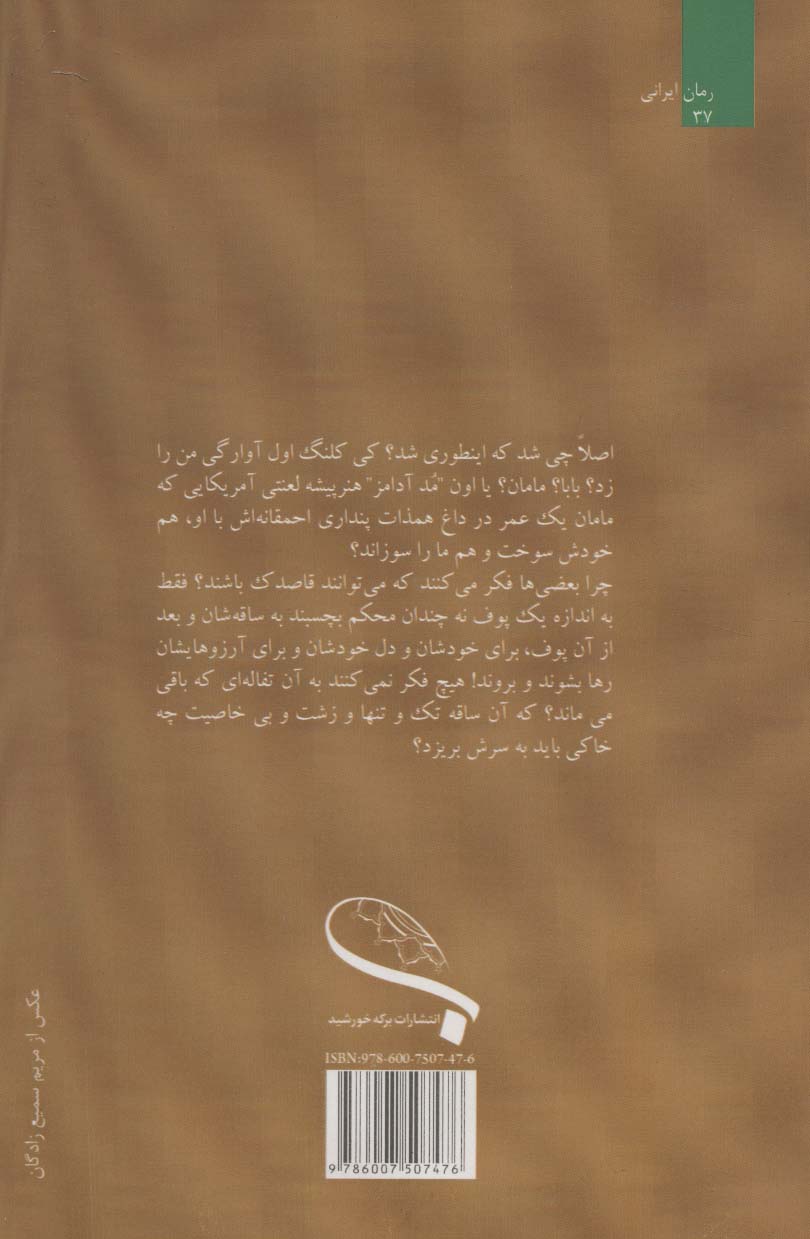 رمان ایرانی
۳۷
اصلاً چی شد که اینطوری شد؟ کی کلنگ اول آوارگی من را
زد؟ بابا؟ مامان؟ یا اون "مُد آدامز" هنرپیشه لعنتی آمریکایی که
مامان یک عمر در داغ همذات پنداری احمقانه‌اش با او، هم
خودش سوخت و هم ما را سوزاند؟
چرا بعضی‌ها فکر می‌کنند که می‌توانند قاصدک باشند؟ فقط
به اندازه یک پوف نه چندان محکم بچسبند به ساقه‌شان و بعد
از آن پوف، برای خودشان و دل خودشان و برای آرزوهایشان
رها بشوند و بروند! هیچ فکر نمی‌کنند به آن تفاله‌ای که باقی
می ماند؟ که آن ساقه تک و تنها و زشت و بی خاصیت چه
خاکی باید به سرش بریزد؟
انتشارات برکه خورشید
ISBN:978-600-7507-47-6
9 786007 507476
عکس از مریم سمیع زادگان